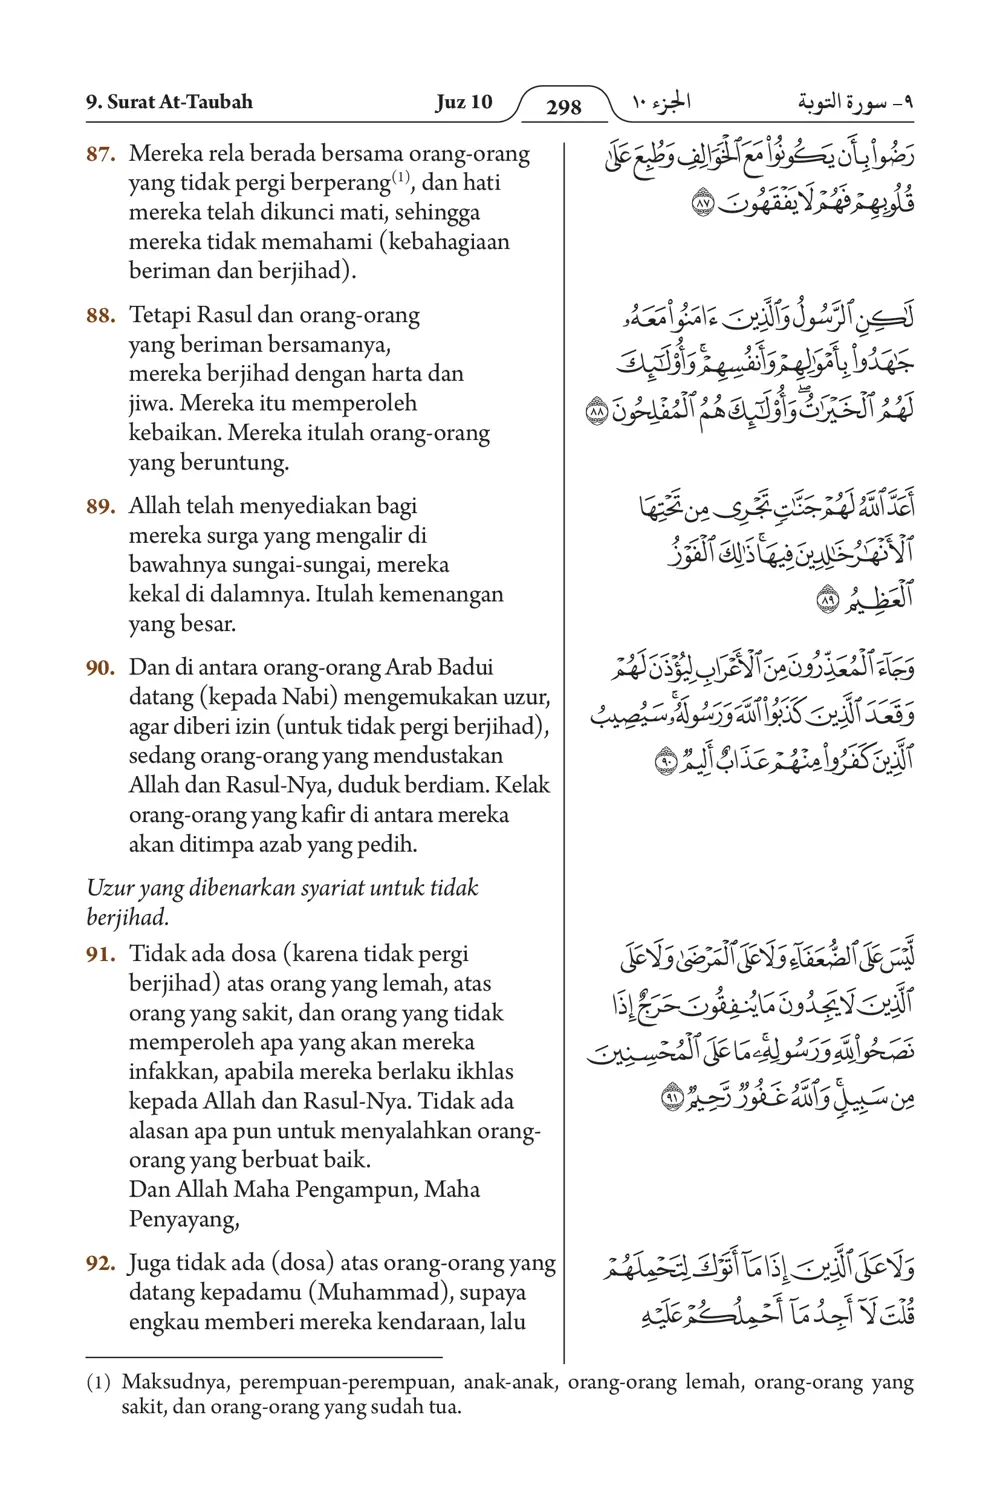 9. Surat At-Taubah Juz 10 298 الجزء ١٠ ٩- سورة التوبة
87. Mereka rela berada bersama orang-orang
yang tidak pergi berperang(1), dan hati
mereka telah dikunci mati, sehingga
mereka tidak memahami (kebahagiaan
beriman dan berjihad).
رَضُوا۟ بِأَن يَكُونُوا۟ مَعَ ٱلْخَوَالِفِ وَطُبِعَ عَلَىٰ
قُلُوبِهِمْ فَهُمْ لَا يَفْقَهُونَ ٨٧
88. Tetapi Rasul dan orang-orang
yang beriman bersamanya,
mereka berjihad dengan harta dan
jiwa. Mereka itu memperoleh
kebaikan. Mereka itulah orang-orang
yang beruntung.
لَـٰكِنِ ٱلرَّسُولُ وَٱلَّذِينَ ءَامَنُوا۟ مَعَهُۥ
جَـٰهَدُوا۟ بِأَمْوَٰلِهِمْ وَأَنفُسِهِمْ ۚ وَأُو۟لَـٰٓئِكَ
لَهُمُ ٱلْخَيْرَٰتُ ۖ وَأُو۟لَـٰٓئِكَ هُمُ ٱلْمُفْلِحُونَ ٨٨
89. Allah telah menyediakan bagi
mereka surga yang mengalir di
bawahnya sungai-sungai, mereka
kekal di dalamnya. Itulah kemenangan
yang besar.
أَعَدَّ ٱللَّهُ لَهُمْ جَنَّـٰتٍ تَجْرِى مِن تَحْتِهَا
ٱلْأَنْهَـٰرُ خَـٰلِدِينَ فِيهَا ۚ ذَٰلِكَ ٱلْفَوْزُ
ٱلْعَظِيمُ ٨٩
90. Dan di antara orang-orang Arab Badui
datang (kepada Nabi) mengemukakan uzur,
agar diberi izin (untuk tidak pergi berjihad),
sedang orang-orang yang mendustakan
Allah dan Rasul-Nya, duduk berdiam. Kelak
orang-orang yang kafir di antara mereka
akan ditimpa azab yang pedih.
وَجَآءَ ٱلْمُعَذِّرُونَ مِنَ ٱلْأَعْرَابِ لِيُؤْذَنَ لَهُمْ
وَقَعَدَ ٱلَّذِينَ كَذَبُوا۟ ٱللَّهَ وَرَسُولَهُۥ ۚ سَيُصِيبُ
ٱلَّذِينَ كَفَرُوا۟ مِنْهُمْ عَذَابٌ أَلِيمٌ ٩٠
Uzur yang dibenarkan syariat untuk tidak
berjihad.
91. Tidak ada dosa (karena tidak pergi
berjihad) atas orang yang lemah, atas
orang yang sakit, dan orang yang tidak
memperoleh apa yang akan mereka
infakkan, apabila mereka berlaku ikhlas
kepada Allah dan Rasul-Nya. Tidak ada
alasan apa pun untuk menyalahkan orang-
orang yang berbuat baik.
Dan Allah Maha Pengampun, Maha
Penyayang,
لَّيْسَ عَلَى ٱلضُّعَفَآءِ وَلَا عَلَى ٱلْمَرْضَىٰ وَلَا عَلَى
ٱلَّذِينَ لَا يَجِدُونَ مَا يُنفِقُونَ حَرَجٌ إِذَا
نَصَحُوا۟ لِلَّهِ وَرَسُولِهِۦ ۚ مَا عَلَى ٱلْمُحْسِنِينَ
مِن سَبِيلٍ ۚ وَٱللَّهُ غَفُورٌ رَّحِيمٌ ٩١
92. Juga tidak ada (dosa) atas orang-orang yang
datang kepadamu (Muhammad), supaya
engkau memberi mereka kendaraan, lalu
وَلَا عَلَى ٱلَّذِينَ إِذَا مَآ أَتَوْكَ لِتَحْمِلَهُمْ
قُلْتَ لَآ أَجِدُ مَآ أَحْمِلُكُمْ عَلَيْهِ
(1) Maksudnya, perempuan-perempuan, anak-anak, orang-orang lemah, orang-orang yang
sakit, dan orang-orang yang sudah tua.